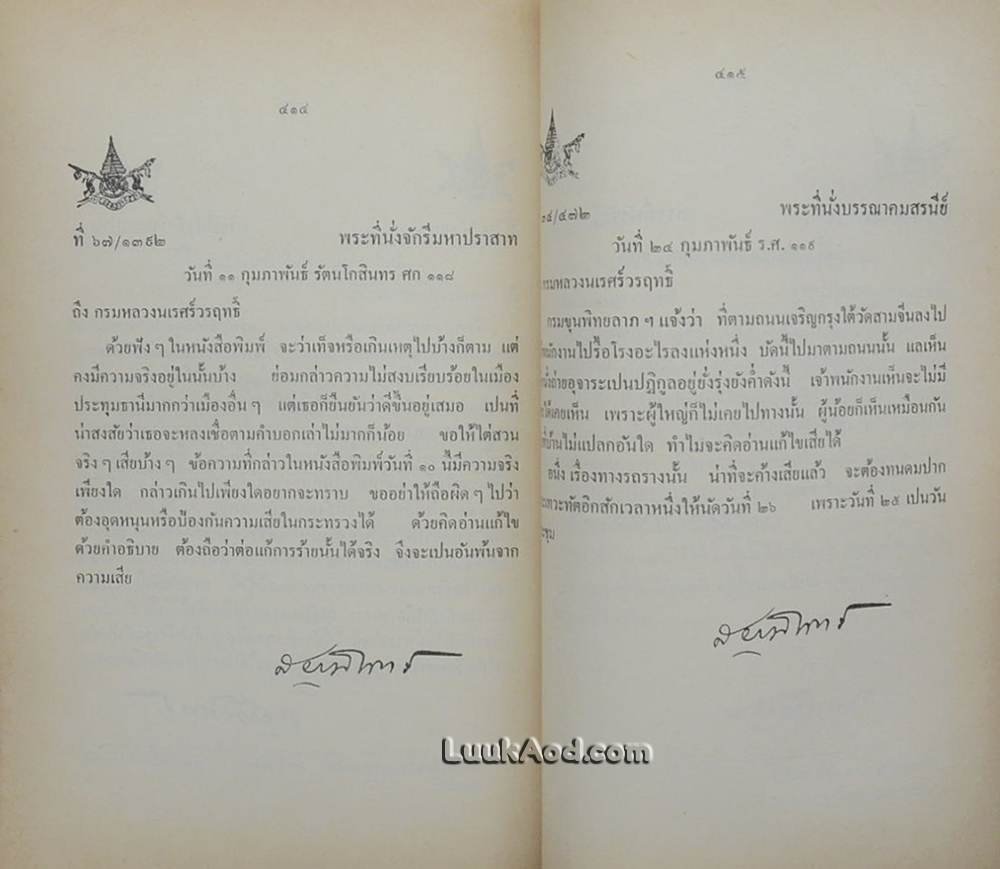 ๔๑๔
ที่ ๖๗/๑๓๙๒ พระที่นั่งจักรีมหาปราสาท
วันที่ ๑๑ กุมภาพันธ์ รัตนโกสินทร ศก ๑๑๘
ถึง กรมหลวงนเรศร์วรฤทธิ์
ด้วยฟัง ๆ ในหนังสือพิมพ์ จะว่าเท็จหรือเกินเหตุไปบ้างก็ตาม แต่
คงมีความจริงอยู่ในนั้นบ้าง ย่อมกล่าวความไม่สงบเรียบร้อยในเมือง
ประทุมธานีมากกว่าเมืองอื่น ๆ แต่เธอก็ยืนยันว่าดีขึ้นอยู่เสมอ เปนที่
น่าสงสัยว่าเธอจะหลงเชื่อตามคำบอกเล่าไม่มากก็น้อย ขอให้ไต่สวน
จริง ๆ เสียบ้าง ๆ ข้อความที่กล่าวในหนังสือพิมพ์วันที่ ๑๐ นี้มีความจริง
เพียงใด กล่าวเกินไปเพียงใดอยากจะทราบ ขออย่าให้ถือผิด ๆ ไปว่า
ต้องอุดหนุนหรือป้องกันความเสียในกระทรวงได้ ด้วยคิดอ่านแก้ไข
ด้วยคำอธิบาย ต้องถือว่าต่อแก้การร้ายนั้นได้จริง จึงจะเปนอันพ้นจาก
ความเสีย
สยามินทร์
๔๑๕
๑๔/๔๗๒ พระที่นั่งบรรณาคมสรนีย์
วันที่ ๒๔ กุมภาพันธ์ ร.ศ. ๑๑๙
กรมหลวงนเรศร์วรฤทธิ์
กรมขุนพิทยลาภ ฯ แจ้งว่า ที่ตามถนนเจริญกรุงใต้วัดสามจีนลงไป
พนักงานไปรื้อโรงอะไรลงแห่งหนึ่ง บัดนี้ไปมาตามถนนนั้น แลเห็น
นั่งถ่ายอุจาระเปนปฏิกูลอยู่ยั่งรุ่งยังค่ำดังนี้ เจ้าพนักงานเห็นจะไม่มี
ได้เคยเห็น เพราะผู้ใหญ่ก็ไม่เคยไปทางนั้น ผู้น้อยก็เห็นเหมือนกัน
ที่บ้านไม่แปลกอันใด ทำไมจะคิดอ่านแก้ไขเสียได้
อนึ่ง เรื่องทางรถรางนั้น น่าที่จะค้างเสียแล้ว จะต้องทนดมปาก
เทวะทัตอีกสักเวลาหนึ่งให้นัดวันที่ ๒๖ เพราะวันที่ ๒๕ เปนวัน
ประชุม
สยามินทร์
LuukAod.com